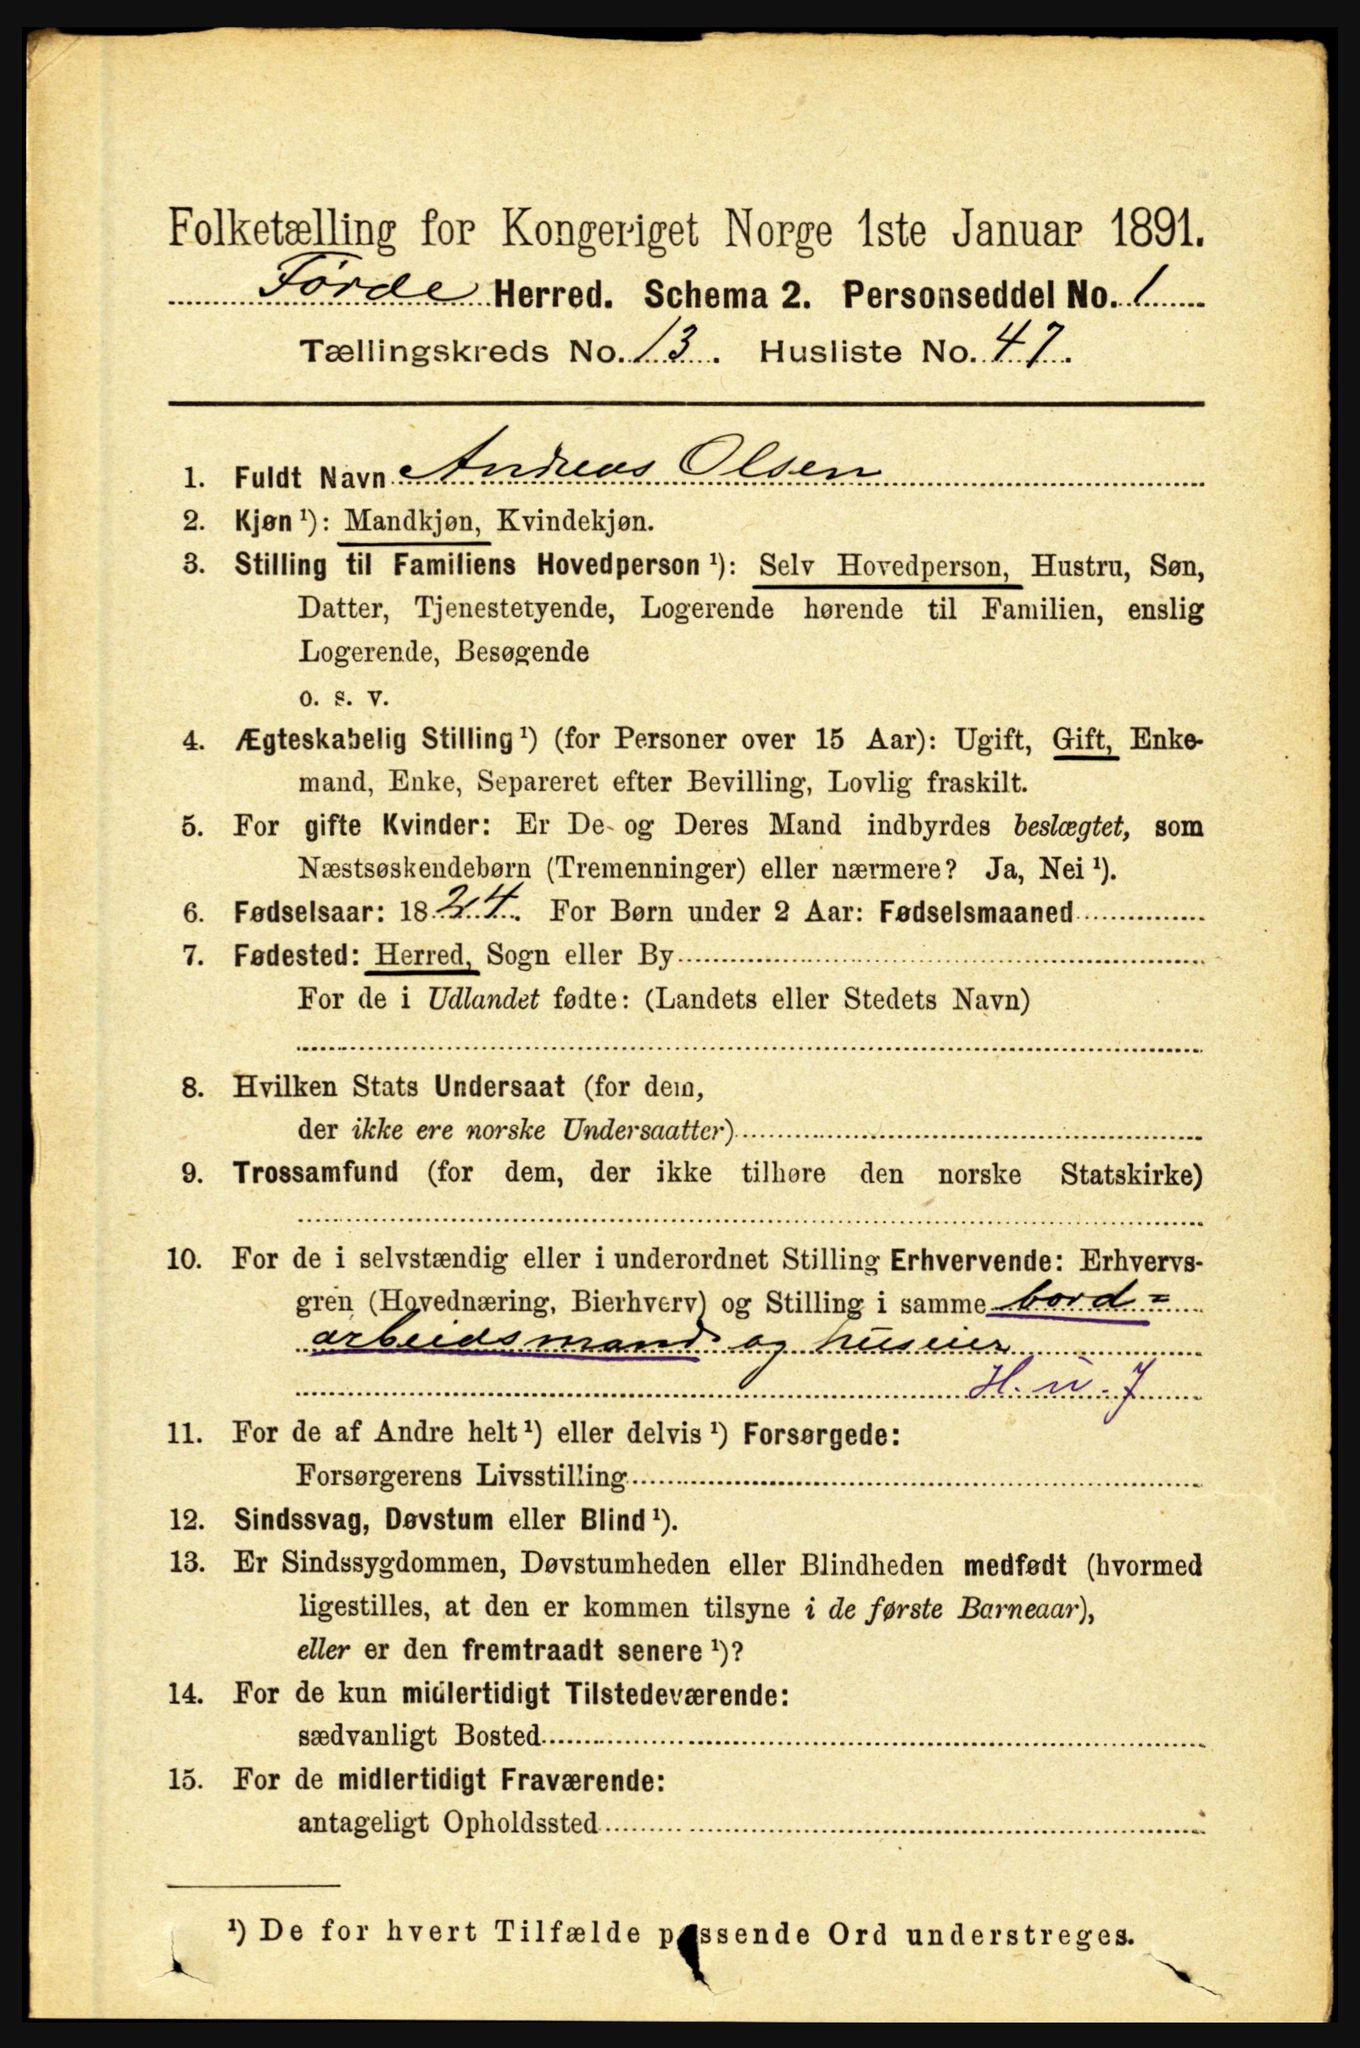 Folketælling for Kongeriget Norge 1ste Januar 1891.
Førde Herred. Schema 2. Personseddel No. 1
Tællingskreds No. 13. Husliste No. 47.
1. Fuldt Navn Andreas Olsen
2. Kjøn ¹): Mandkjøn, Kvindekjøn.
3. Stilling til Familiens Hovedperson ¹): Selv Hovedperson, Hustru, Søn,
Datter, Tjenestetyende, Logerende hørende til Familien, enslig
Logerende, Besøgende
o. s. v.
4. Ægteskabelig Stilling ¹) (for Personer over 15 Aar): Ugift, Gift, Enke-
mand, Enke, Separeret efter Bevilling, Lovlig fraskilt.
5. For gifte Kvinder: Er De og Deres Mand indbyrdes beslægtet, som
Næstsøskendebørn (Tremenninger) eller nærmere? Ja, Nei ¹).
6. Fødselsaar: 1824. For Børn under 2 Aar: Fødselsmaaned
7. Fødested: Herred, Sogn eller By
For de i Udlandet fødte: (Landets eller Stedets Navn)
8. Hvilken Stats Undersaat (for dem,
der ikke ere norske Undersaatter)
9. Trossamfund (for dem, der ikke tilhøre den norske Statskirke)
10. For de i selvstændig eller i underordnet Stilling Erhvervende: Erhvervs-
gren (Hovednæring, Bierhverv) og Stilling i samme bord=
arbeidsmand og huseier
H. u. J
11. For de af Andre helt ¹) eller delvis ¹) Forsørgede:
Forsørgerens Livsstilling
12. Sindssvag, Døvstum eller Blind ¹).
13. Er Sindssygdommen, Døvstumheden eller Blindheden medfødt (hvormed
ligestilles, at den er kommen tilsyne i de første Barneaar),
eller er den fremtraadt senere ¹)?
14. For de kun midlertidigt Tilstedeværende:
sædvanligt Bosted
15. For de midlertidigt Fraværende:
antageligt Opholdssted
¹) De for hvert Tilfælde passende Ord understreges.